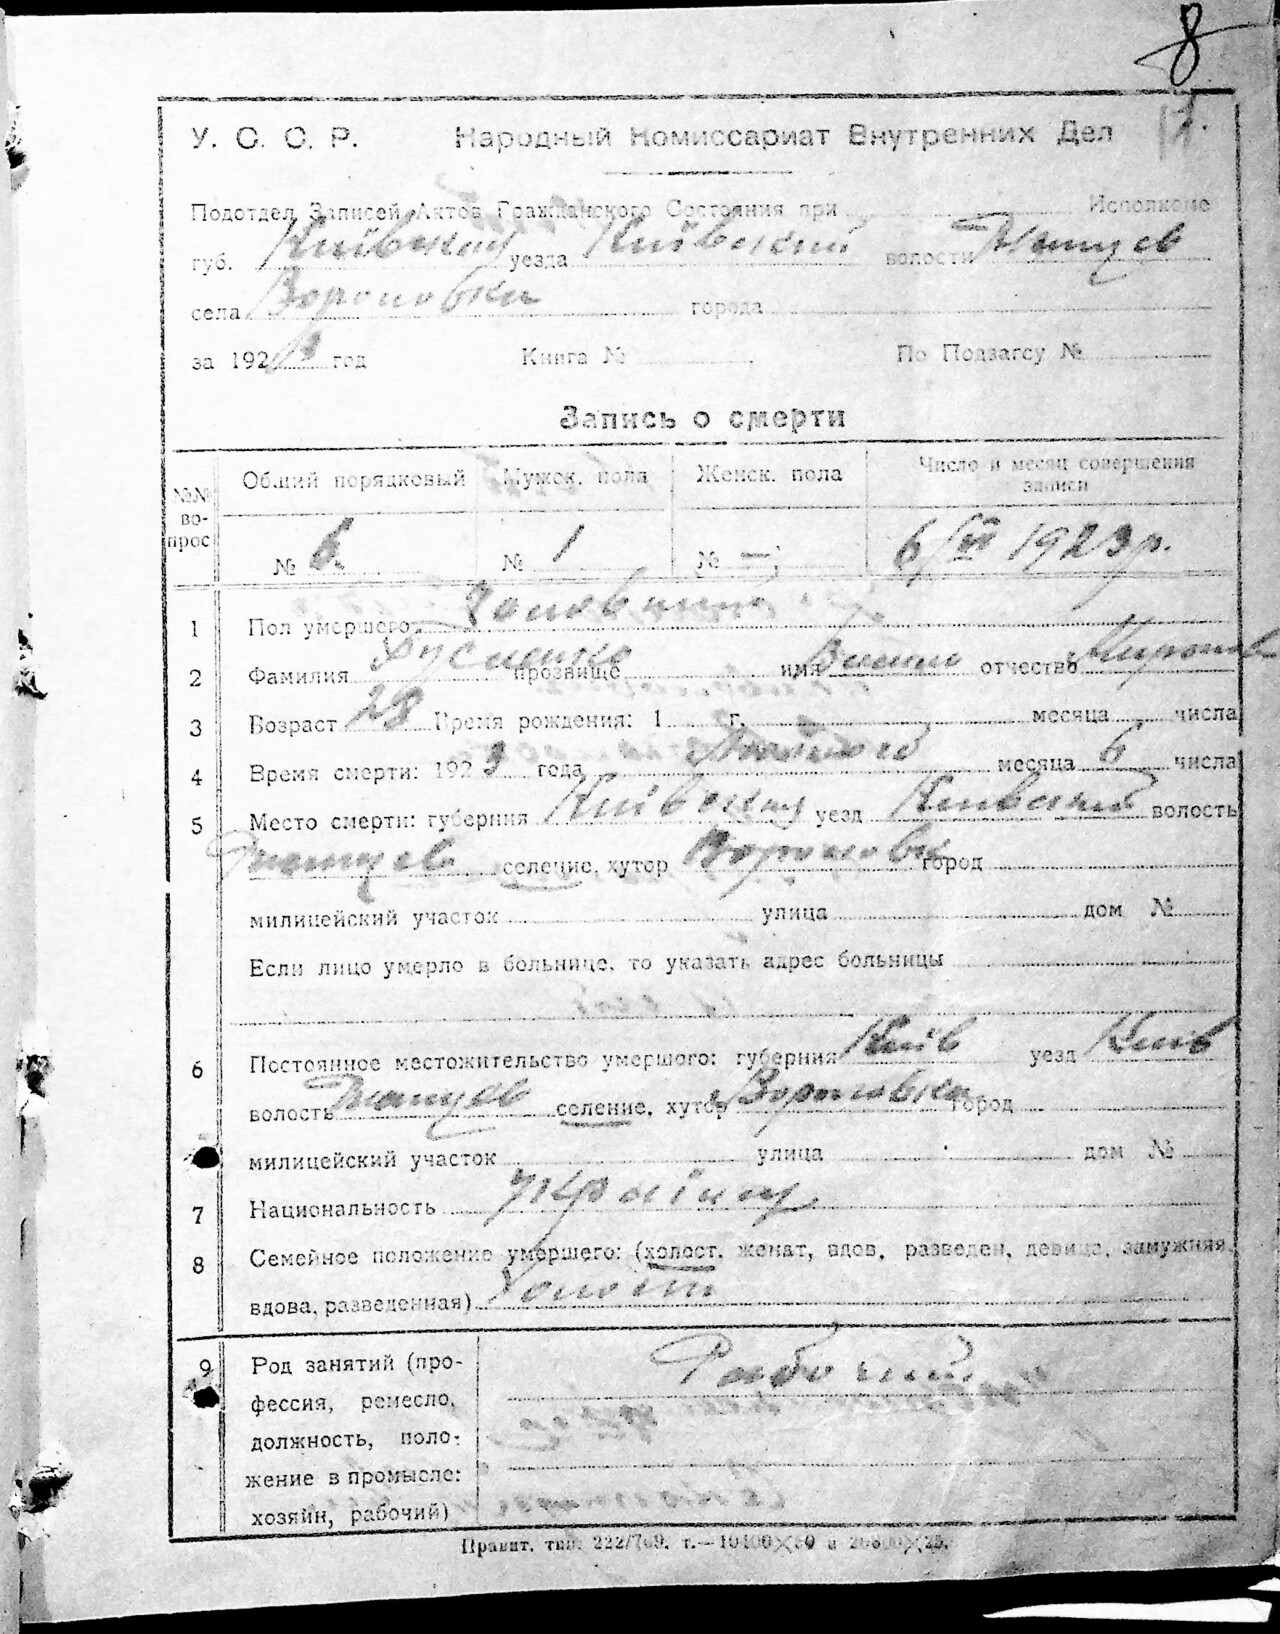 8
У. С. С. Р. Народный Комиссариат Внутренних Дел
Подотдел Записей Актов Гражданского Состояния при Исполкоме
губ. Київская уезда Київский волости
села Вороновка города
за 1923 год Книга № По Подзагсу №
Запись о смерти
№№ вопрос Общий порядковый Мужск. пола Женск. пола Число и месяц совершения записи
№ 6. № 1 № — 6/VII 1923 р.
1 Пол умершего
2 Фамилия прозвище имя отчество Миронов
3 Возраст 28 Время рождения: 1 г. месяца числа
4 Время смерти: 1923 года месяца 6 числа
5 Место смерти: губерния Київская уезд Київский волость
селение, хутор Вороновка город
милицейский участок улица дом №
Если лицо умерло в больнице, то указать адрес больницы
6 Постоянное местожительство умершего: губерния Київ уезд Київ
волость селение, хутор Вороновка город
милицейский участок улица дом №
7 Национальность
8 Семейное положение умершего: (холост, женат, вдов, разведен, девица, замужняя,
вдова, разведенная) Холост
9 Род занятий (про- Рабочий
фессия, ремесло,
должность, поло-
жение в промысле:
хозяин, рабочий)
Правит. тип. 222/769. т.—